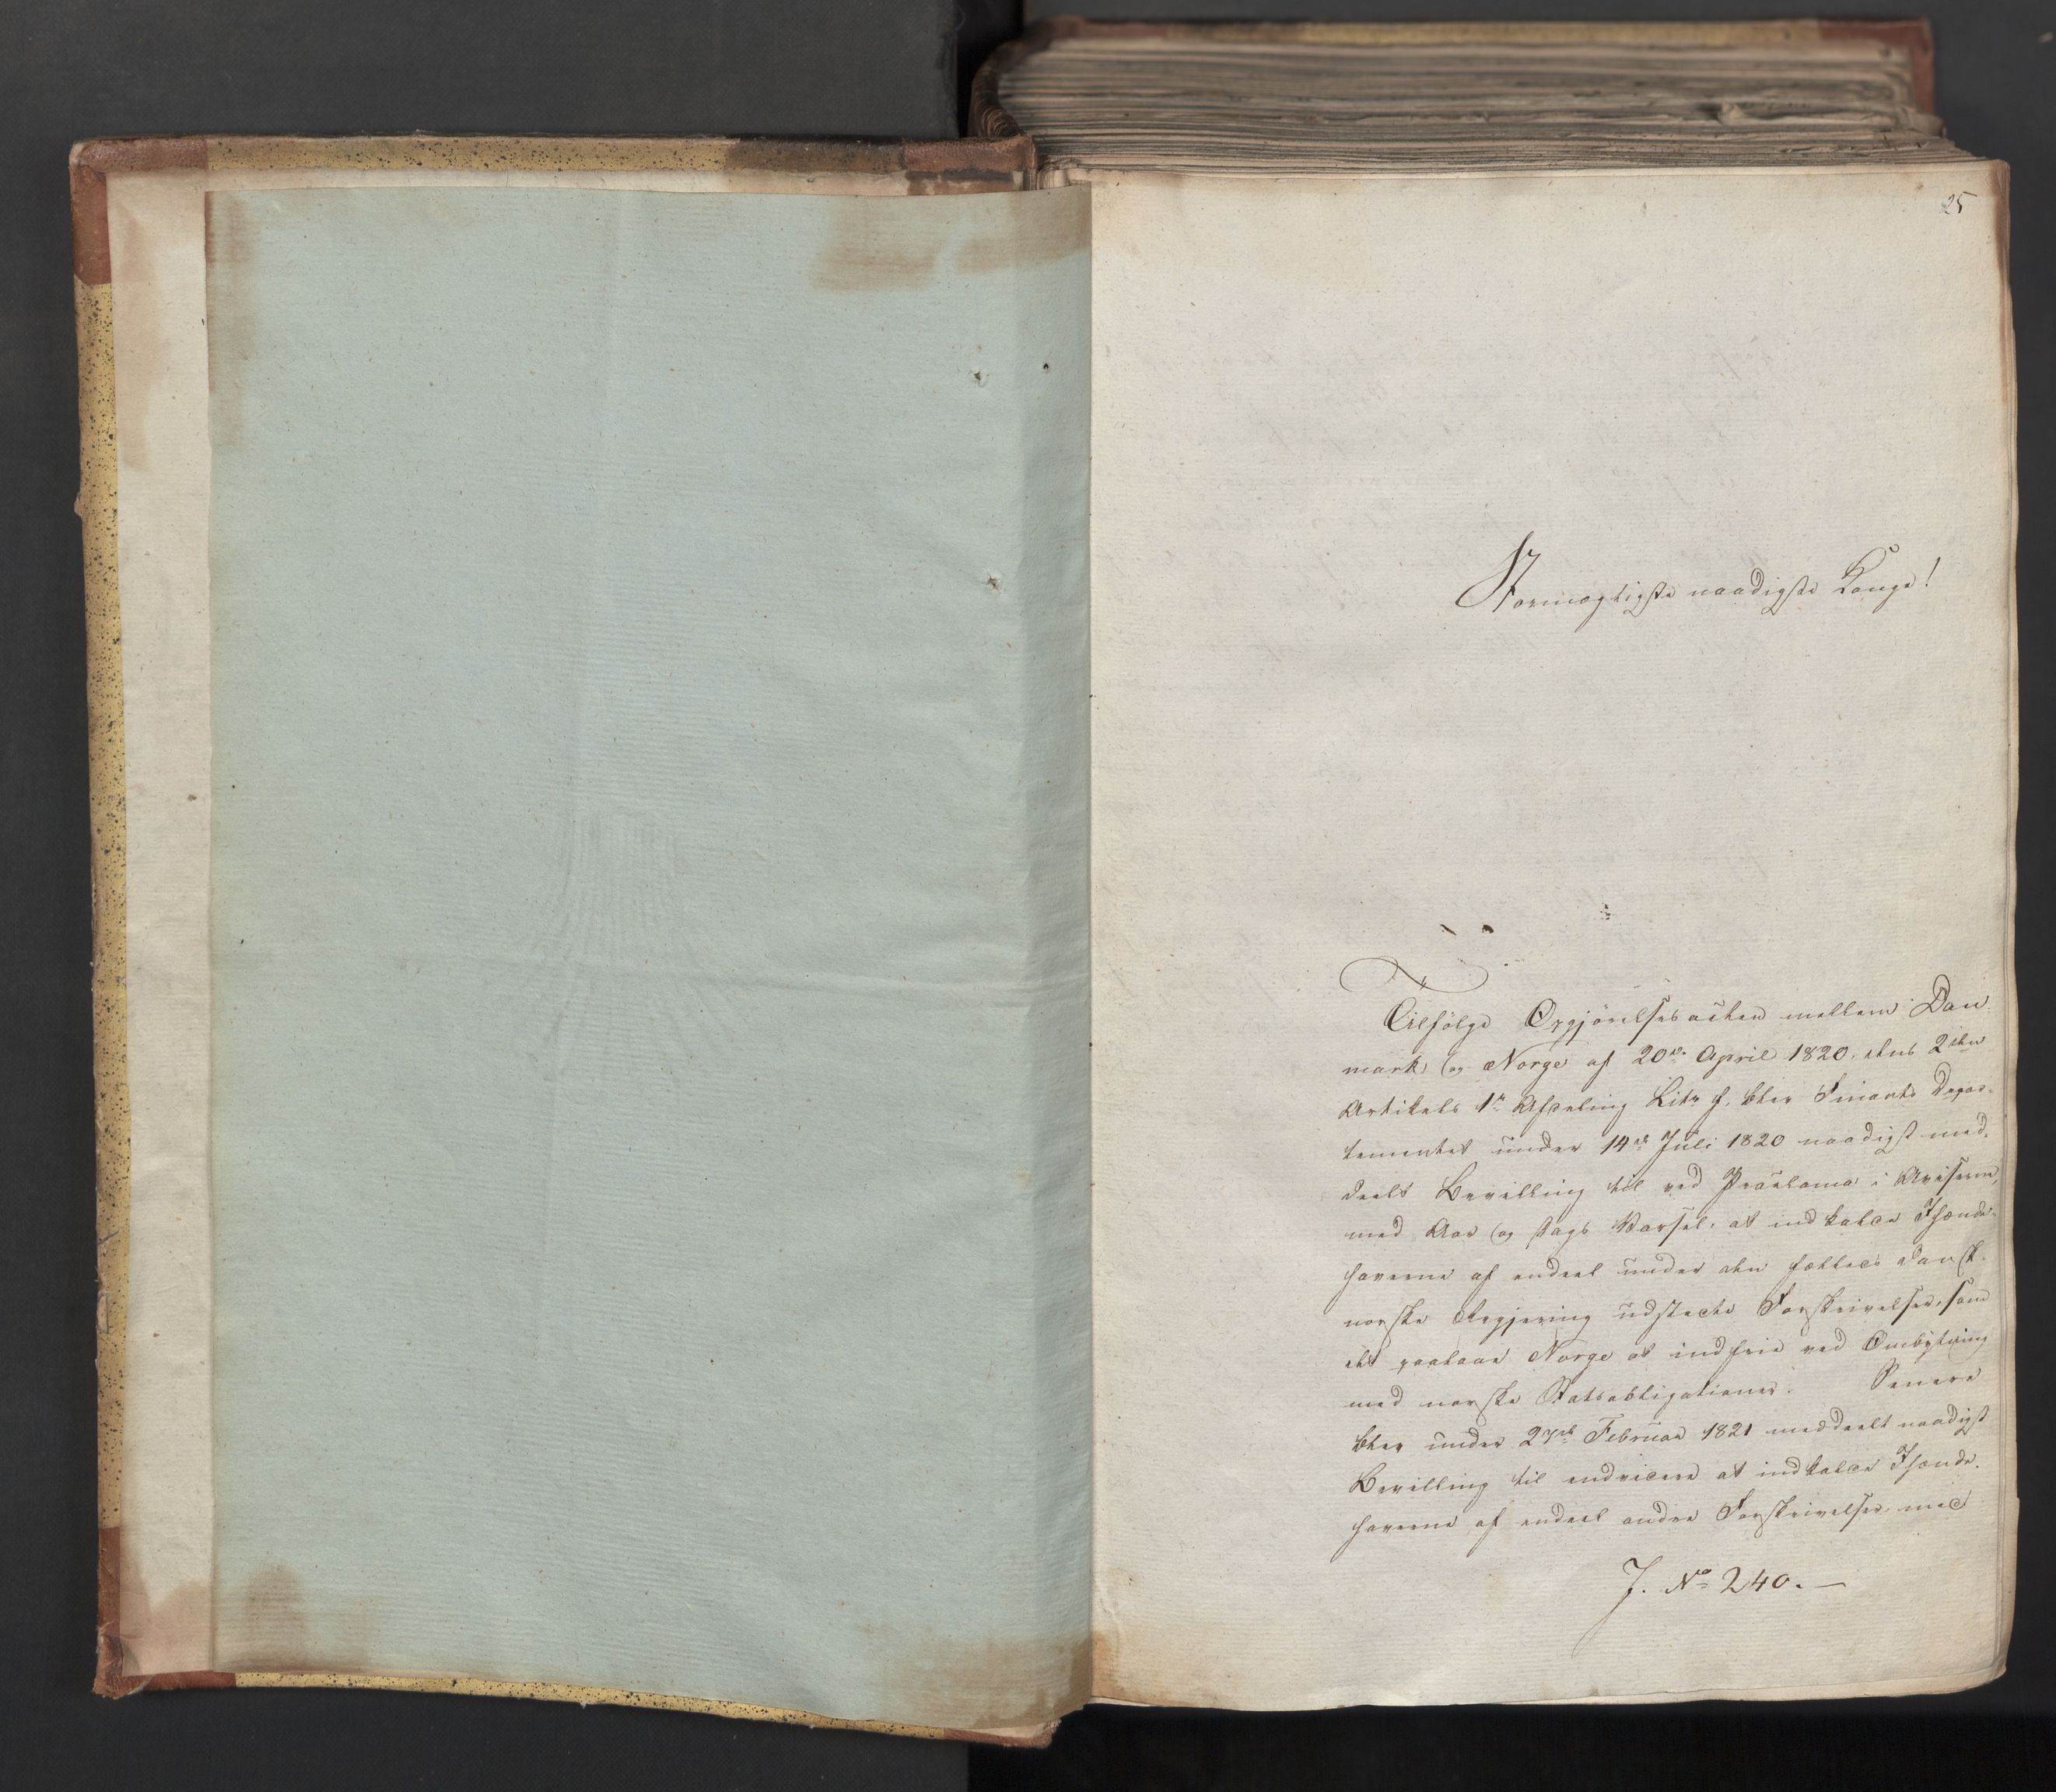 25
Stormægtigste naadigste Konge!
Tilfölge Opgjörelsesacten mellem Dan-
mark og Norge af 20de April 1820, dens 2den
Artikels 1te Afdeling Litr f. blev Finants Depar-
tementet under 14de Juli 1820 naadigst med-
deelt Bevilling til ved Proclama i Aviserne,
med Aar og Dags Varsel, at indkalde Ihænde-
haverne af endeel under den fælleds dansk-
norske Regjering udstædte Forskrivelser, som
det paalaae Norge at indfrie ved Ombytning
med norske Statsobligationer. Senere
blev under 27de Februar 1821 meddeelt naadigst
Bevilling til endvidere at indkalde Ihænde-
haverne af endeel andre Forskrivelser med
J. No 240. —